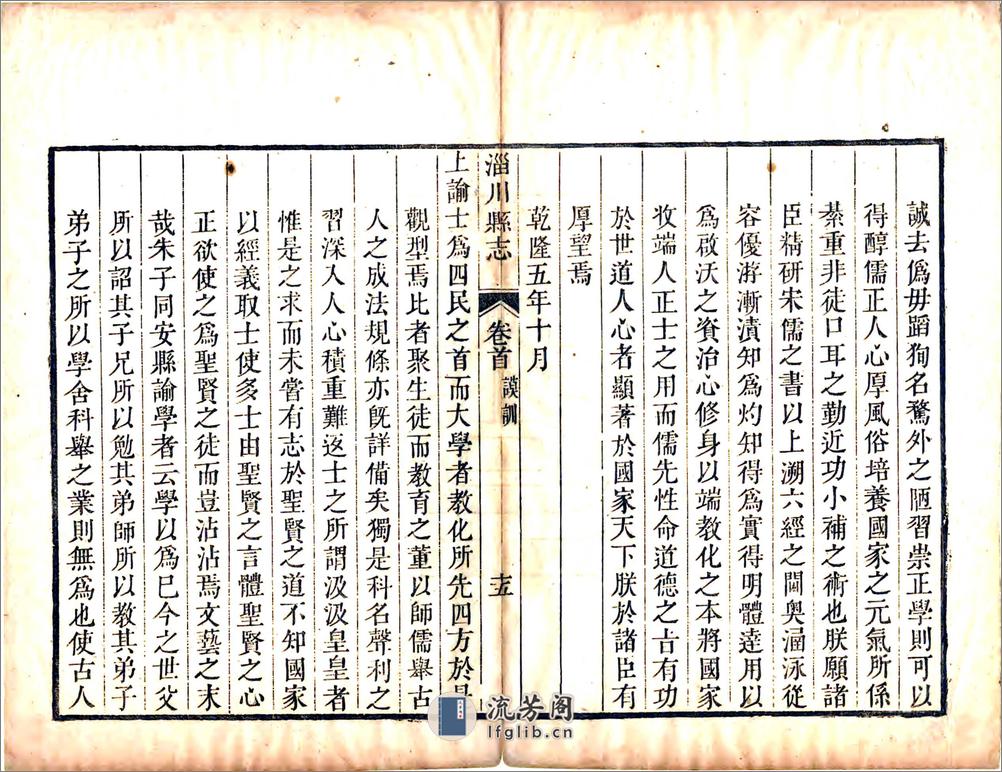 誠去僞毋蹈狥名鶩外之陋習崇正學則可以
得醇儒正人心厚風俗培養國家之元氣所係
綦重非徒口耳之勤近功小補之術也朕願諸
臣精研宋儒之書以上溯六經之閫奧涵泳從
容優游漸漬知爲灼知得爲實得明體達用以
爲啟沃之資治心修身以端教化之本將國家
收端人正士之用而儒先性命道德之旨有功
於世道人心者顯著於國家天下朕於諸臣有
厚望焉
乾隆五年十月
淄川縣志 卷首 謨訓 十五
上諭士爲四民之首而大學者教化所先四方於是
觀型焉比者聚生徒而教育之董以師儒舉古
人之成法規條亦旣詳備矣獨是科名聲利之
習深入人心積重難返士之所謂汲汲皇皇者
惟是之求而未嘗有志於聖賢之道不知國家
以經義取士使多士由聖賢之言體聖賢之心
正欲使之爲聖賢之徒而豈沾沾焉文藝之末
哉朱子同安縣諭學者云學以爲己今之世父
所以詔其子兄所以勉其弟師所以教其弟子
弟子之所以學舍科舉之業則無爲也使古人
流芳阁
lfglib.cn